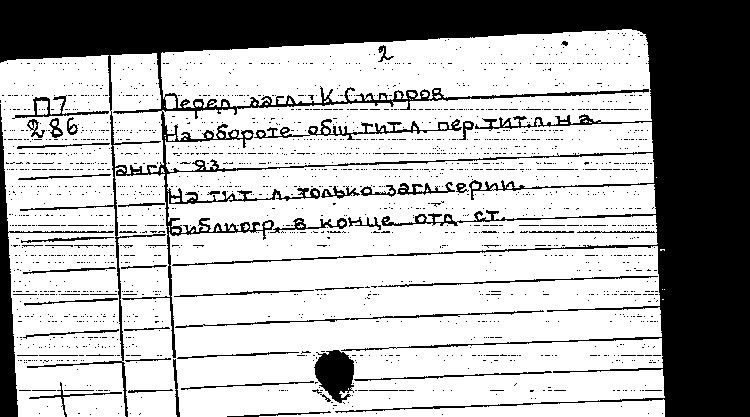 2
П7
286
Перед, загл.: К. Сидоров
На обороте общ. тит. л. пер. тит. л. на
англ. яз.
На тит. л. только загл. серии.
Библиогр. в конце отд. ст.